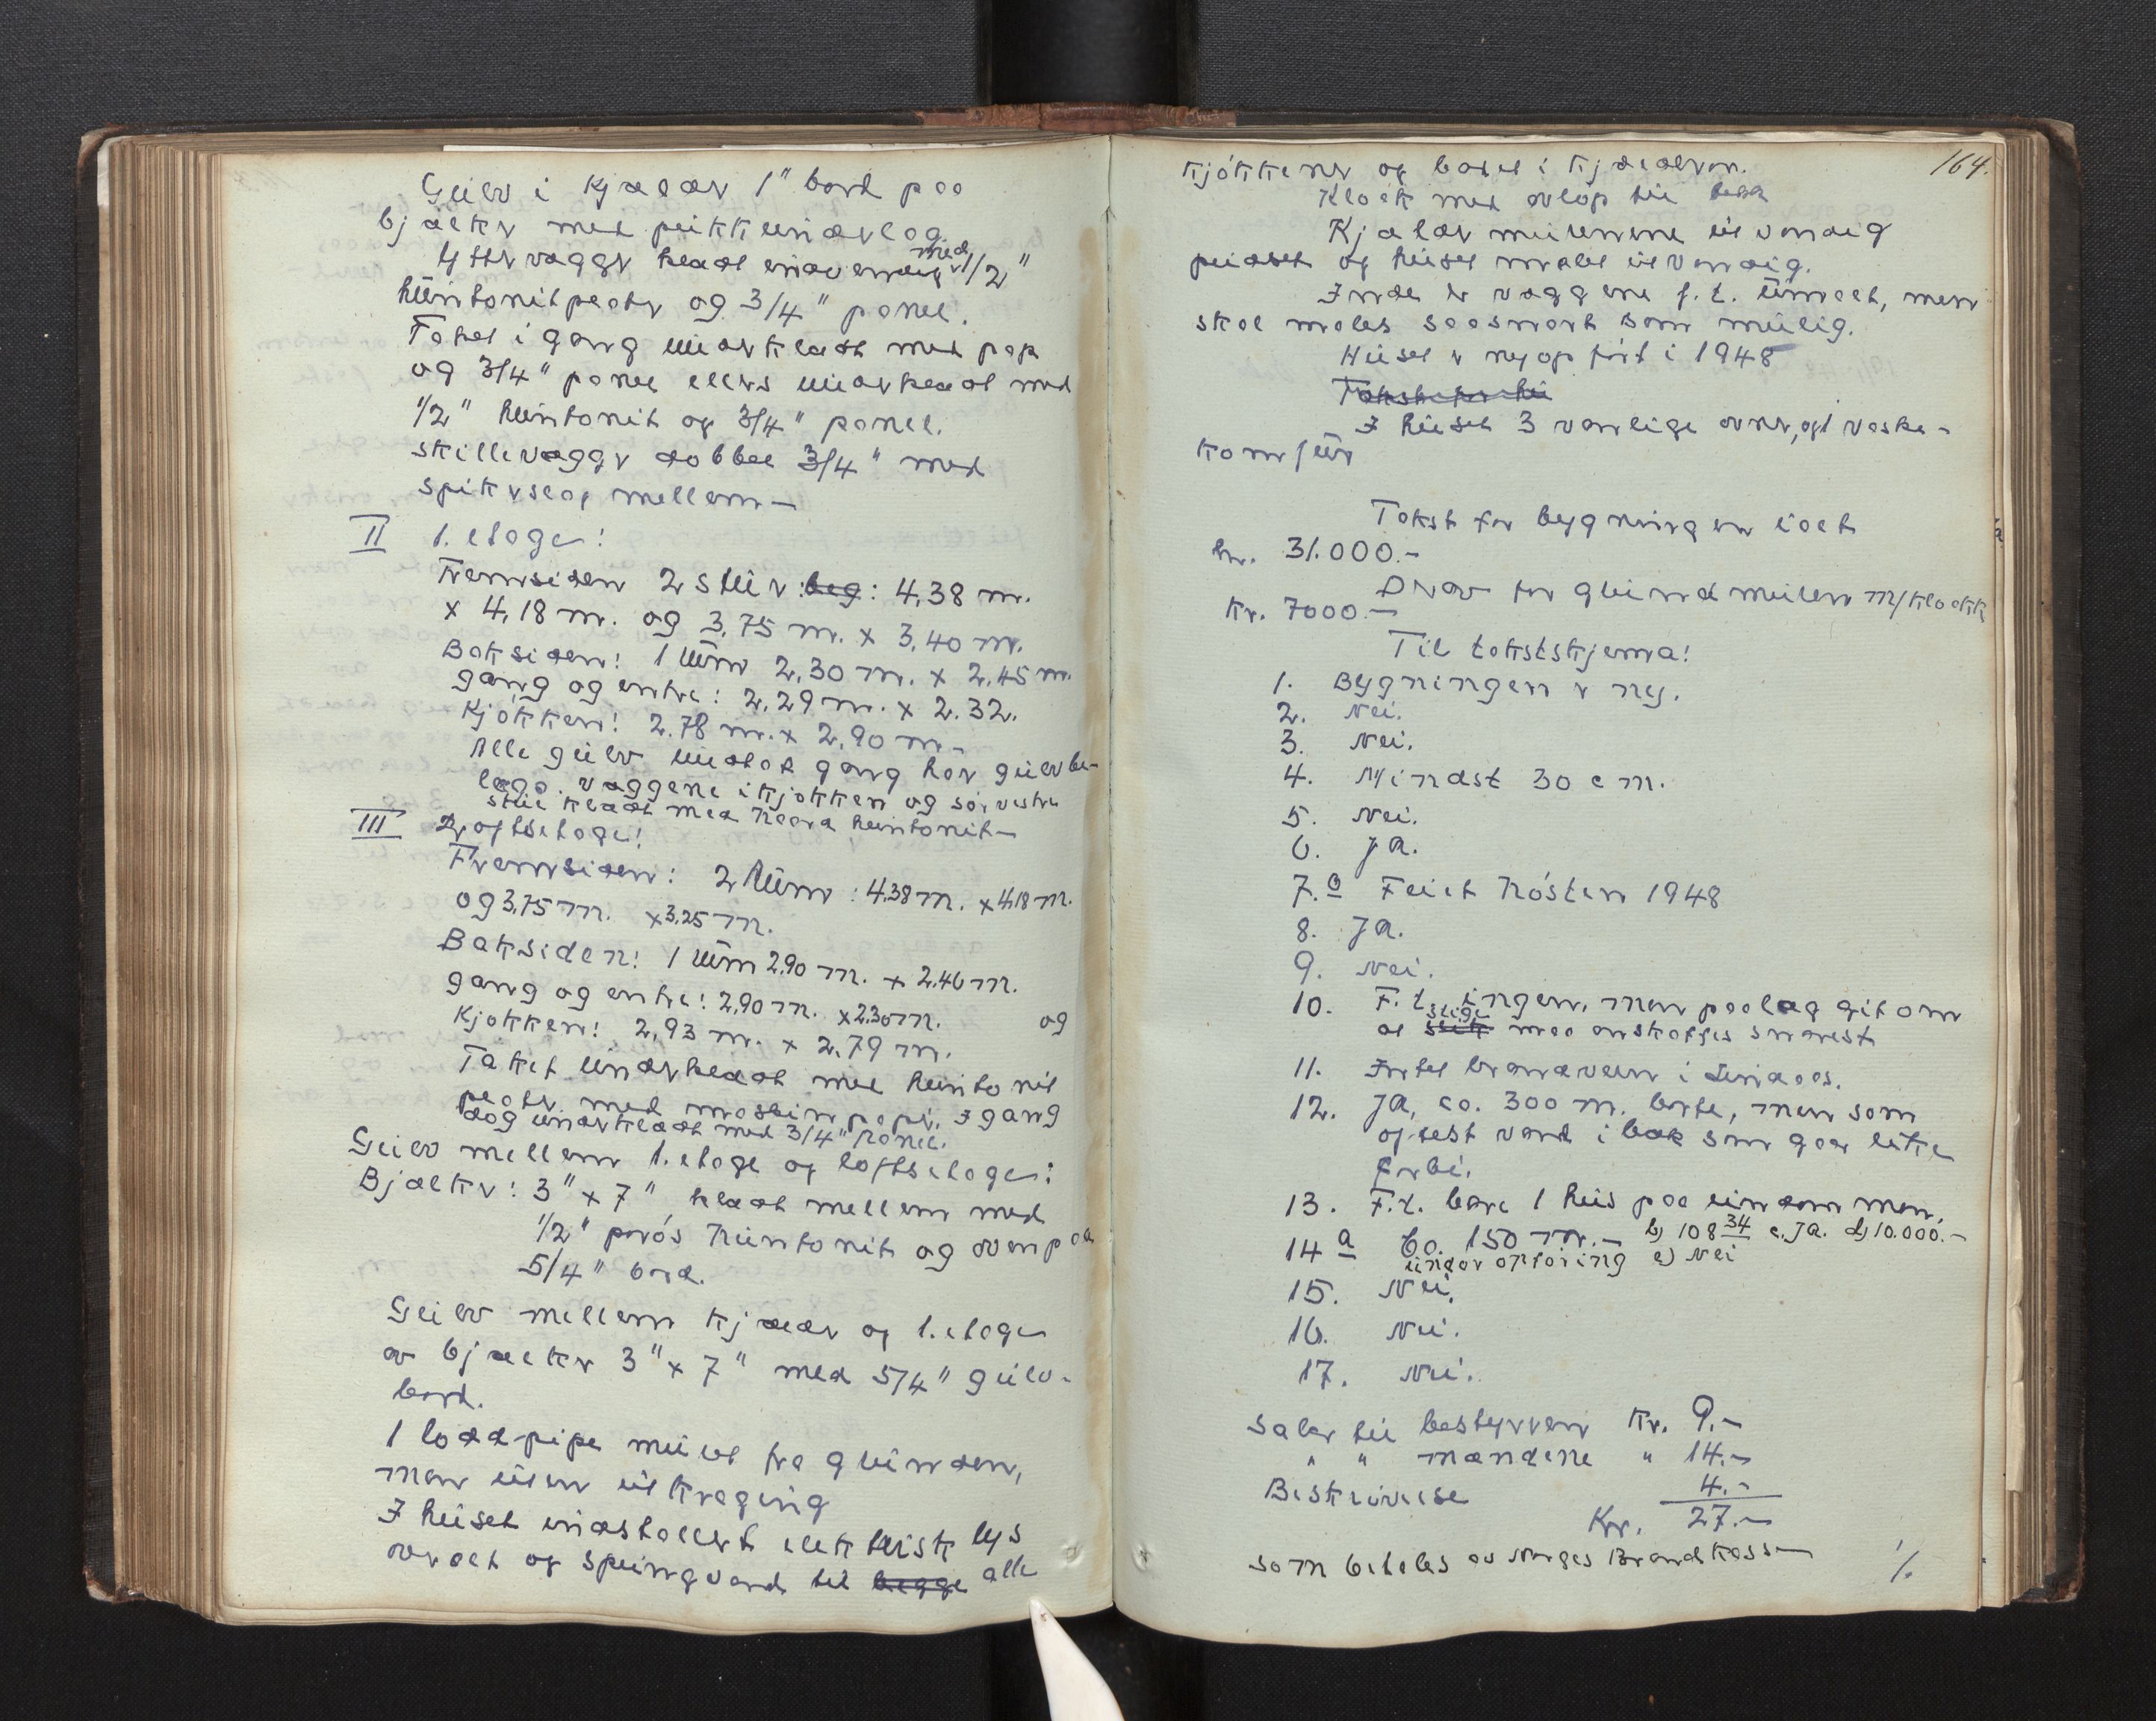 Gulv i kjælder 1" bord paa
bjælker med pukkunderlag.
Yttervægger klædt indvendig med 1/2"
huntonitplater og 3/4" panel.
Taket i gang underklædt med pap
og 3/4" panel ellers underklædt med
1/2" huntonit og 3/4" panel.
Skillevægger dobbel 3/4" med
spikerslag mellem -
II 1. etage:
Fremsiden 2 stuer: beg: 4,38 m.
x 4,18 m. og 3,75 m. x 3,40 m.
Baksiden: 1 rum 2,30 m. x 2,45 m.
gang og entre: 2,29 m. x 2.32.
Kjøkken: 2.78 m. x 2,90 m -
Alle gulv undtat gang har gulvbe-
læg. Væggene i kjøkken og sørvestre
stue klædt med haard huntonit -
III Loftsetage:
Fremsiden: 2 rum: 4.38 m. x 4,18 m.
og 3,75 m. x 3,25 m.
Baksiden: 1 rum 2,90 m. x 2,46 m.
gang og entre: 2,90 m. x 2,30 m. og
Kjøkken: 2,93 m. x 2,79 m.
Taket underklædt med huntonit
plater med maskinpapir. I gang
dog underklædt med 3/4" panel.
Gulv mellem 1. etage og loftsetage:
Bjælker: 3" x 7", klædt mellem med
1/2" porøs huntonit og ovenpaa
5/4" bord.
Gulv mellem kjælder og 1. etage
av bjælker 3" x 7" med 5/4" gulv-
bord.
1 løpe-pipe muret fra grunden,
men uten utkraging
I huset indstallert elektrisk lys
overalt og springvand til begge alle
164.
kjøkkener og badet i kjælderen.
Kloak med avløp til bekk
Kjældermurene utvendig
pudset og huset malet utvendig.
Inde er væggene f. t. umalt, men
skal males saasnart som mulig.
Huset er nyopført i 1948
Takst for hu
I huset 3 vanlige ovner, og 1 vaske-
komfur
Takst for bygningen ialt
kr. 31.000.-
Derav for grundmuren m/kloakk
Kr. 7000.-
Til takstskjema:
1. Bygningen er ny.
2. Nei.
3. Nei.
4. Mindst 30 cm.
5. Nei.
6. Ja.
7. a Feiet høsten 1948
8. Ja.
9. Nei.
10. F. t. ingen, men paalæg git om
at slik slige maa anskaffes snarest
11. Intet brandvern i Lindaas.
12. Ja, ca. 300 m. borte, men som
oftest vand i bæk som gaar like
forbi.
13. F.t. bare 1 hus paa eindommen.
14 a Ca. 150 m. - b) 108 34 c. Ja. d) 10.000.-
under opføring e) Nei
15. Nei.
16. Nei.
17. Nei.
Salær til bestyreren Kr. 9.-
" " mændene " 14.-
Beskrivelse 4.-
Kr. 27.-
som betales av Norges Brandkasse -
./.